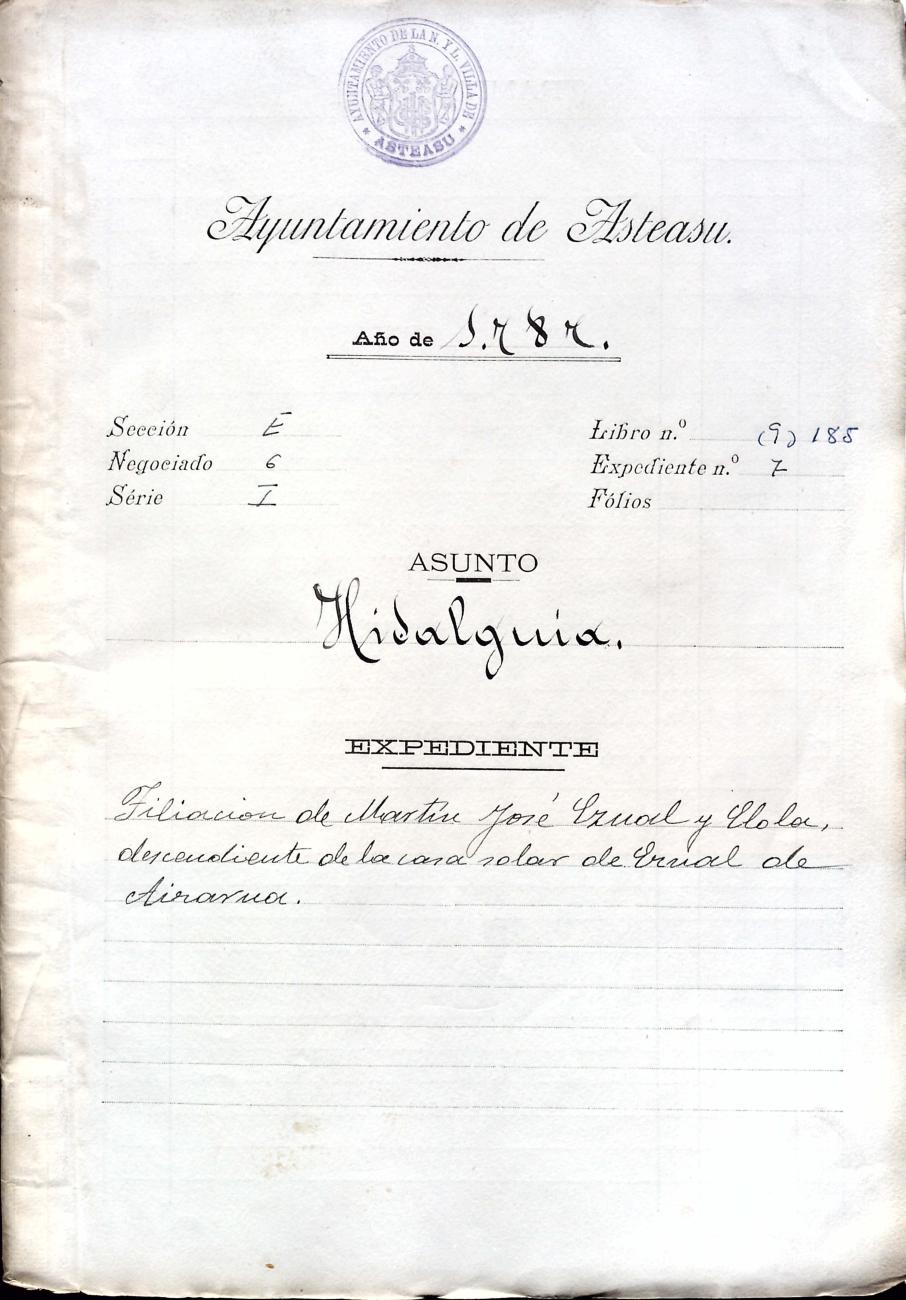 AYUNTAMIENTO DE LA N. Y L. VILLA DE
ASTEASU
Ayuntamiento de Asteasu.
Año de 1.787.
Sección E
Libro n.º (9) 185
Negociado 6
Expediente n.º 7
Série I
Fólios
ASUNTO
Hidalguia.
EXPEDIENTE
Filiacion de Martín José Eznal y Elola,
descendiente de la casa solar de Eznal de